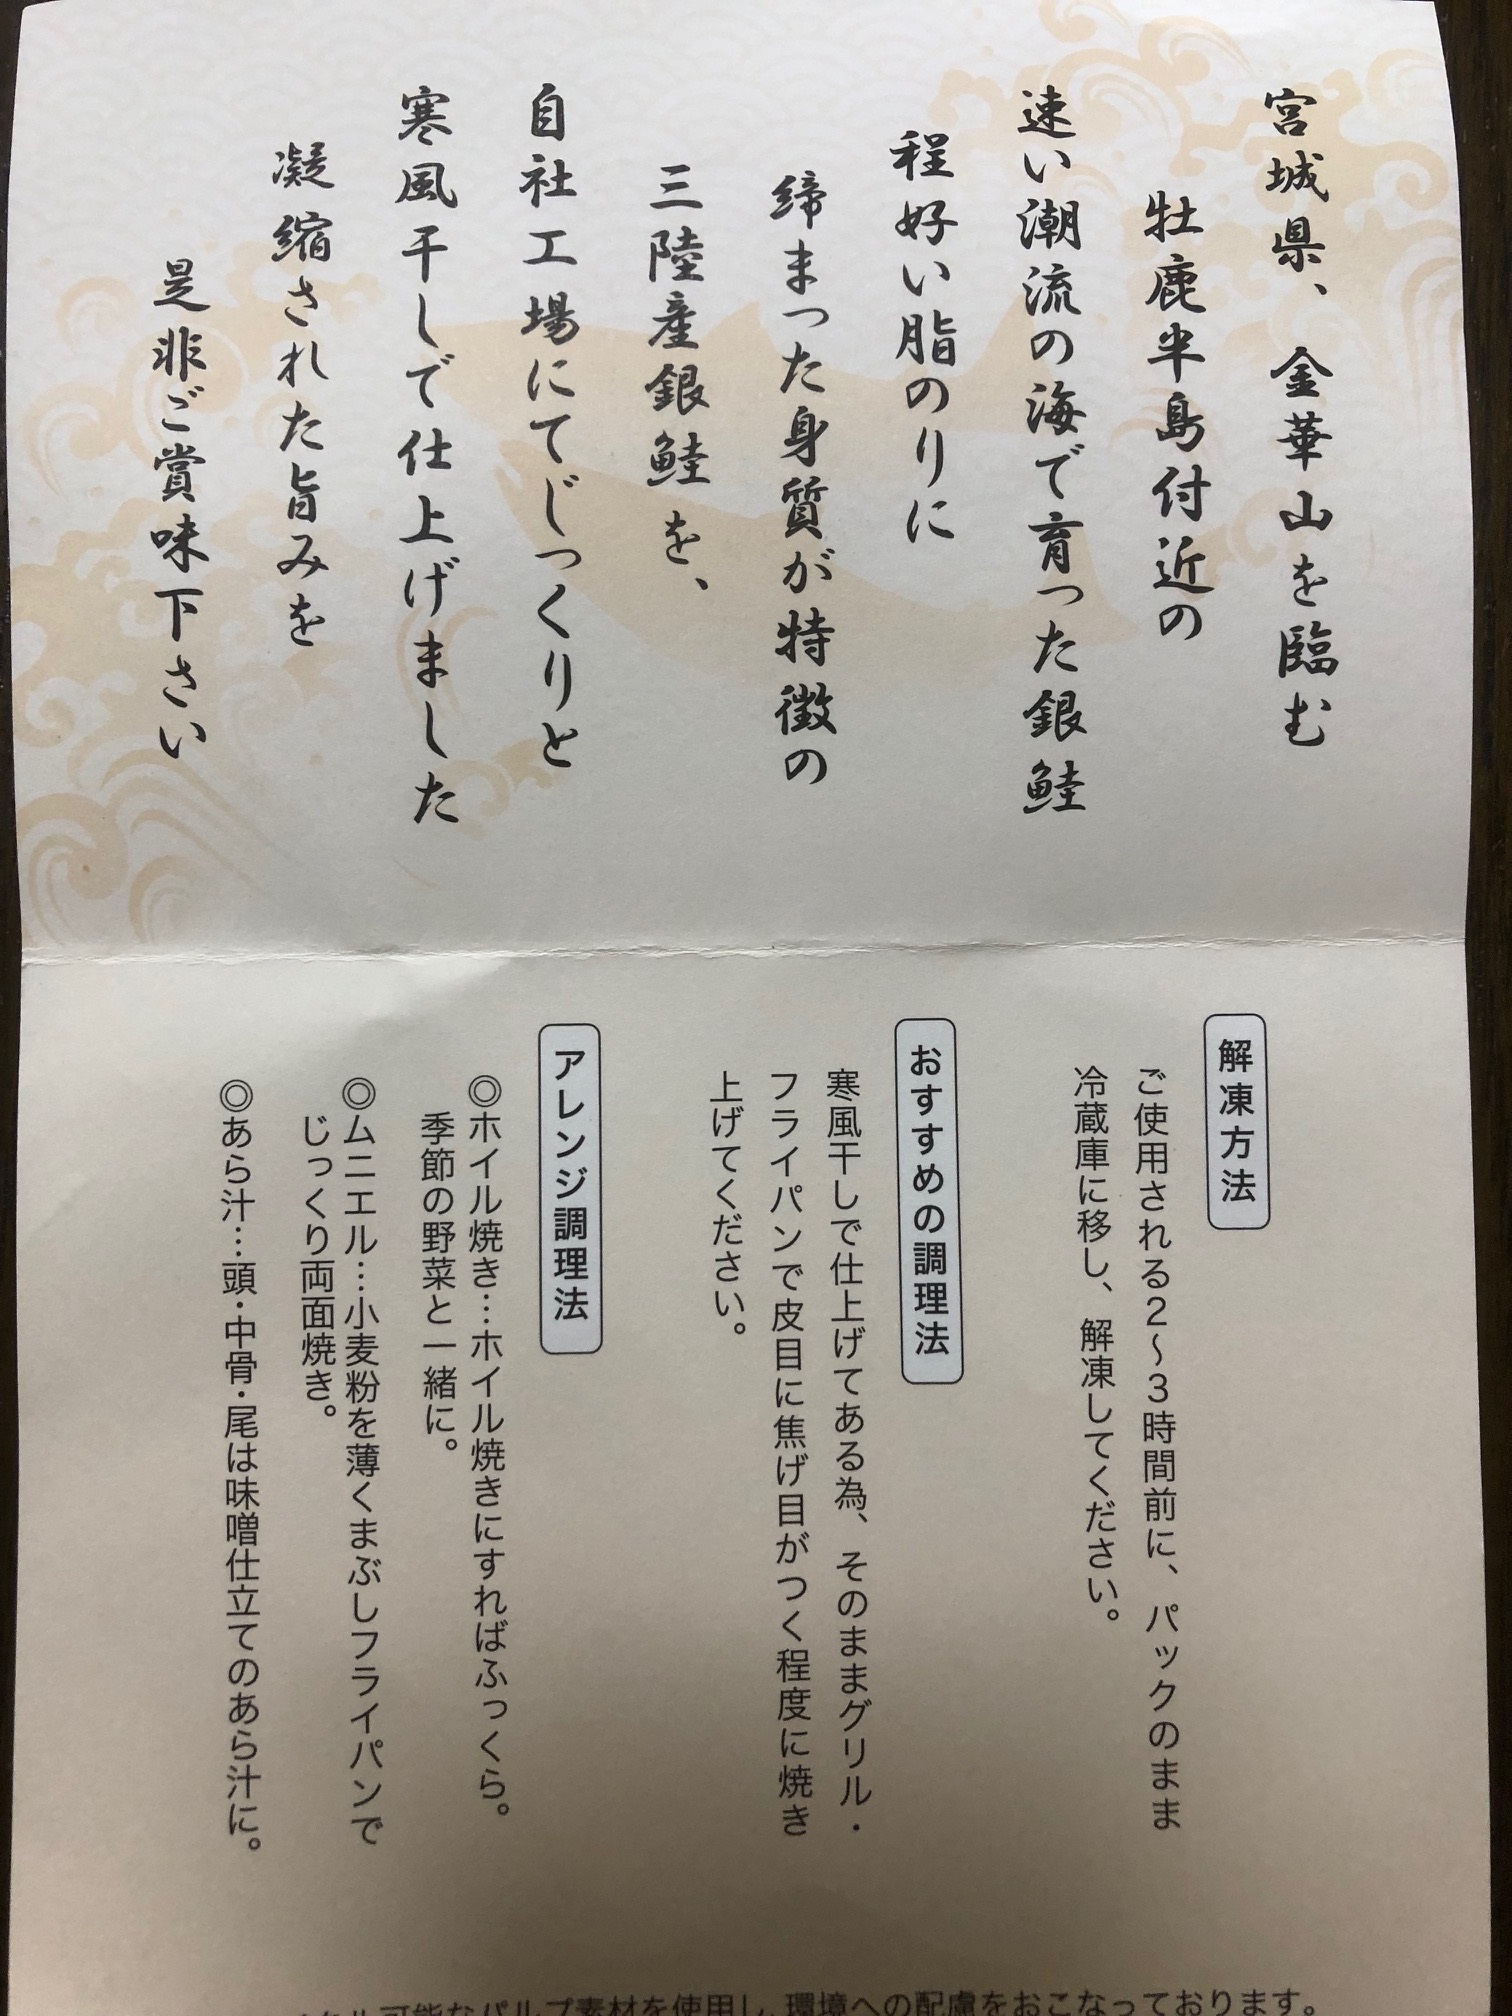 宮城県、金華山を臨む
牡鹿半島付近の
速い潮流の海で育った銀鮭
程好い脂のりに
締まった身質が特徴の
三陸産銀鮭を、
自社工場にてじっくりと
寒風干しで仕上げました
凝縮された旨みを
是非ご賞味下さい
解凍方法
ご使用される2〜3時間前に、パックのまま
冷蔵庫に移し、解凍してください。
おすすめの調理法
寒風干しで仕上げてある為、そのままグリル・
フライパンで皮目に焦げ目がつく程度に焼き
上げてください。
アレンジ調理法
◎ホイル焼き…ホイル焼きにすればふっくら。
季節の野菜と一緒に。
◎ムニエル…小麦粉を薄くまぶしフライパンで
じっくり両面焼き。
◎あら汁…頭・中骨・尾は味噌仕立てのあら汁に。
可能なパルプ素材を使用し、環境への配慮をおこなっております。